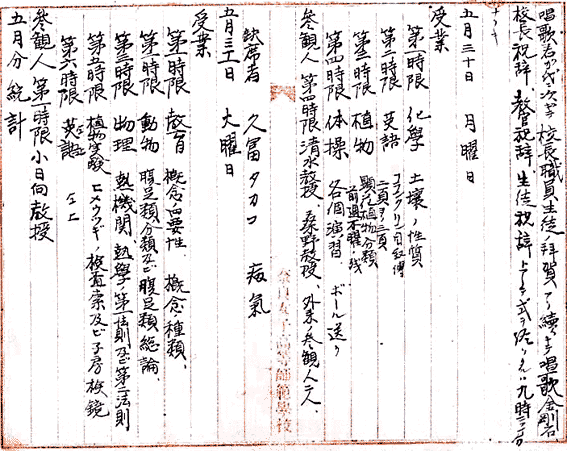 唱歌君が代次ギ校長職員生徒拝賀アリ續イテ唱歌金剛石
校長祝辞、教官祝辞、生徒祝辞
五月三十日 月曜日
受業
第一時限 化學 土壌ノ性質
第二時限 英語 二頁ヨリ三頁
第三時限 植物 顯花植物分類 前週木曜ノ残
第四時限 体操 各個演習 ボール送リ
参観人 第四時限清水教授、桑野教授、外来ノ参観人二人、
缺席者 久冨タカコ 病氣
五月三十一日 火曜日
受業
第一時限 教育 概念ノ必要性 概念ノ種類、
第二時限 動物 腹足類分類及ビ腹足類総論、
第三時限 物理 熱機関、熱學ノ第一法則及第二法則
第五時限 植物実験 ヒメウツギノ検査索及ビ子房検鏡
第六時限 英語
参観人 第一時限小日向教授
五月分統計
奈良女子高等師範學校